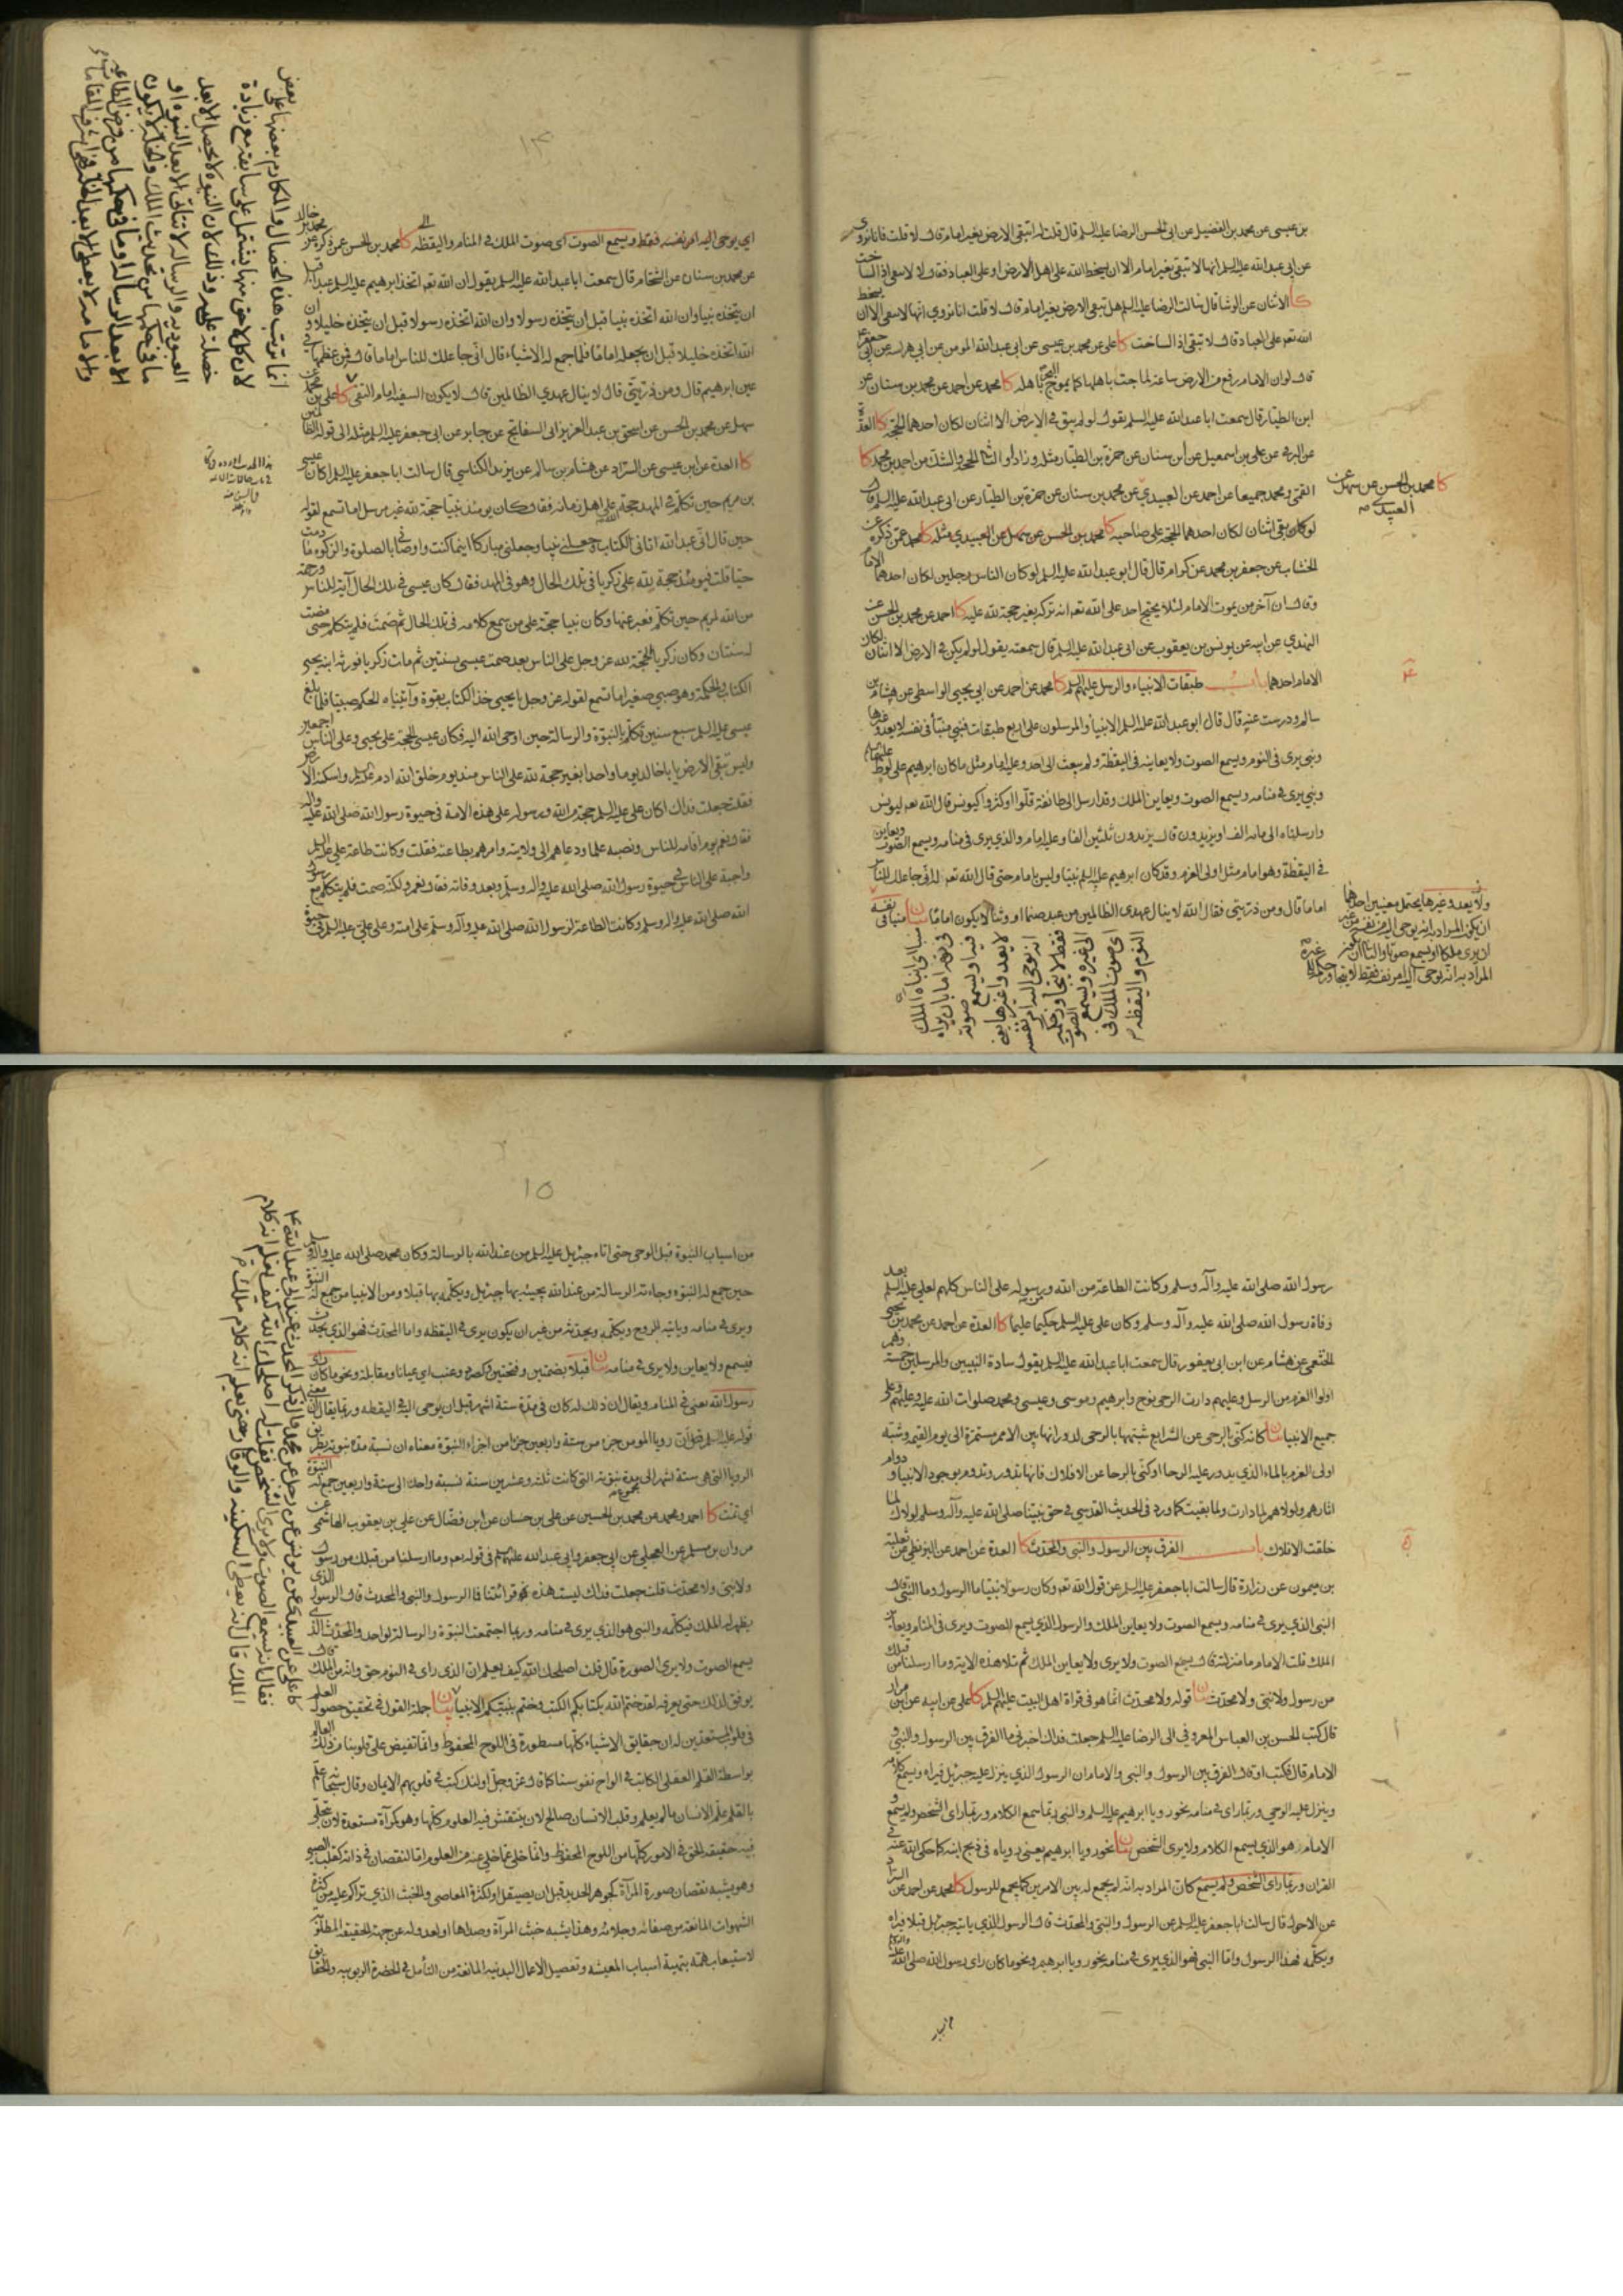 بن عيسى عن محمد بن الفضيل عن ابى الحسن الرضا عليه السلم قال قلت له اتبقى الارض بغير امام قال لا قلت فانا نروى
عن ابى عبد الله عليه السلم انها لا تبقى بغير امام الا ان يسخط الله على اهل الارض او على العباد فقال لا لا تبقى اذا لساخت
كا الاثنان عن الوشا قال سالت الرضا عليه السلم هل تبقى الارض بغير امام قال لا قلت انا نروي انها لا تبقى الا ان يسخط
الله تعم على العباد قال لا تبقى اذا لساخت كا على عن محمد بن عيسى عن ابى عبد الله المومن عن ابى هراسه عن ابى جعفر
قال لو ان الامام رفع من الارض ساعة لماجت باهلها كما يموج البحر باهله كا محمد عن احمد عن محمد بن سنان عن
ابن الطيار قال سمعت ابا عبد الله عليه السلم يقول لو لم يبق فى الارض الا اثنان لكان احدهما الحجة كا العدة
عن البرقى عن على بن اسمعيل عن ابن سنان عن حمزة بن الطيار مثله وزاد او الثانى الحجة والشك من احمد بن محمد كا
القمى و محمد جميعا عن احمد عن العبيدى عن محمد بن سنان عن حمزة بن الطيار عن ابى عبد الله عليه السلم قال
لو كان بقى اثنان لكان احدهما الحجة على صاحبه كا محمد بن الحسن عن سهل عن العبيدي مثله كا محمد عمن ذكره عن
الخشاب عن جعفر بن محمد عن كرام قال قال ابو عبد الله عليه السلم لو كان الناس رجلين لكان احدهما الامام
وقال ان آخر من يموت الامام لئلا يحتج احد على الله تعم انه تركه بغير حجة لله عليه كا احمد عن محمد بن الحسن عن
النهدي عن ابيه عن يونس بن يعقوب عن ابى عبد الله عليه السلم قال سمعته يقول لو لم يكن فى الارض الا اثنان لكان
الامام احدهما باب طبقات الانبياء والرسل عليهم السلم كا محمد عن احمد عن ابى يحيى الواسطى عن هشام بن
سالم ودرست عنه قال قال ابو عبد الله عليه السلم الانبياء والمرسلون على اربع طبقات فنبي منبأ فى نفسه لا يعدو غيرها
ونبى يرى فى النوم ويسمع الصوت ولا يعاينه فى اليقظة ولم يبعث الى احد وعليه امام مثل ما كان ابرهيم على لوط عليهما السلم
ونبي يرى فى منامه ويسمع الصوت ويعاين الملك وقد ارسل الى طائفة قلّوا او كثروا كيونس قال الله تعم ليونس
وارسلناه الى مائة الف او يزيدون قال يزيدون ثلثين الفا وعليه امام والذي يرى فى منامه ويسمع الصوت ويعاين
فى اليقظة وهو امام مثل اولى العزم وقد كان ابرهيم عليه السلم نبيا وليس بامام حتى قال الله تعم انى جاعلك للناس
اماما قال ومن ذريتى فقال الله لا ينال عهدى الظالمين من عبد صنما او وثنا لا يكون اماما بيان منبا فى نفسه
كا محمد بن الحسن عن سهل عن
العبيدي
ولا يعدو غيرها يحتمل معنيين احدهما
ان يكون المراد به انه يوحى اليه من نفسه من غير
ان يرى ملكا او يسمع صوتا والثانى ان يكون
المراد به انه يوحى اليه امر نفسه فقط لا يتجاوز حكمه الى غيره
منبا اى انباه الملك
فى نفسه اما بان يراه
فيه او يسمع صوته
لا يعدو غيرها يعنى
انه يوحى اليه امر نفسه
فقط لا يتجاوز حكمه
الى غيره ويسمع الصوت
اى صوت الملك فى
النوم واليقظه
١٤
اي يوحى اليه امر نفسه فقط ويسمع الصوت اى صوت الملك فى المنام واليقظه كا محمد بن الحسن عمن ذكره عن محمد بن خالد
عن محمد بن سنان عن الشحام قال سمعت ابا عبد الله عليه السلم يقول ان الله تعم اتخذ ابرهيم عليه السلم عبدا قبل
ان يتخذه نبيا وان الله اتخذه نبيا قبل ان يتخذه رسولا وان الله اتخذه رسولا قبل ان يتخذه خليلا وان
الله اتخذه خليلا قبل ان يجعله اماما فلما جمع له الاشياء قال انى جاعلك للناس اماما قال فمن عظمها فى
عين ابرهيم قال ومن ذريتى قال لا ينال عهدي الظالمين قال لا يكون السفيه امام التقى كا على بن محمد عن
سهل عن محمد بن الحسن عن اسحق بن عبد العزيز ابى السفاتج عن جابر عن ابى جعفر عليه السلم مثله الى قوله الظالمين
كا العدة عن ابن عيسى عن السراد عن هشام بن سالم عن يزيد الكناسي قال سالت ابا جعفر عليه السلم اكان عيسى
بن مريم حين تكلم فى المهد حجة الله على اهل زمانه فقال كان يومئذ نبيا حجة لله غير مرسل اما تسمع لقوله
حين قال انى عبد الله اتانى الكتاب وجعلنى نبيا وجعلنى مباركا اينما كنت واوصانى بالصلوة والزكوة ما دمت
حيا قلت فيومئذ حجة لله على زكريا فى تلك الحال وهو فى المهد فقال كان عيسى فى تلك الحال آية للناس ورحمة
من الله لمريم حين تكلم فعبر عنها وكان نبيا حجة على من سمع كلامه فى تلك الحال ثم صمت فلم يتكلم حتى مضت
له سنتان وكان زكريا الحجة لله عز وجل على الناس بعد صمت عيسى بسنتين ثم مات زكريا فورثه ابنه يحيى
الكتاب والحكمة وهو صبي صغير اما تسمع لقوله عز وجل يا يحيى خذ الكتاب بقوة وآتيناه الحكم صبيا فلما بلغ
عيسى عليه السلم سبع سنين تكلم بالنبوة والرسالة حين اوحى الله اليه فكان عيسى الحجة على يحيى وعلى الناس اجمعين
وليس تبقى الارض يا با خالد يوما واحدا بغير حجة لله على الناس منذ يوم خلق الله ادم عليه السلم واسكنه الارض
فقلت جعلت فداك اكان على عليه السلم حجة من الله ورسوله على هذه الامة فى حيوة رسول الله صلى الله عليه واله
فقال نعم يوم اقامه للناس ونصبه علما ودعاهم الى ولايته وامرهم بطاعته فقلت وكانت طاعة على عليه السلم
واجبة على الناس فى حيوة رسول الله صلى الله عليه واله وسلم وبعد وفاته فقال نعم ولكنه صمت فلم يتكلم مع رسول
الله صلى الله عليه واله وسلم وكانت الطاعة لرسول الله صلى الله عليه وآله وسلم على امته وعلى على عليه السلم فى حيوة
انما ترتب هذه الخصال والمكارم بعضها على بعض
لان كل لاحق منها يشتمل على سابقه مع زيادة
خصلة عليه وذلك لان النبوه لا تحصل الا بعد
العبوديه والرساله لا تتاتى الا بعد النبوه او
ما فى حكمها من تحديث الملك والخله لا يكون
الا بعد الرساله او ما فى حكمها من
والامامه لا يعطى الا بعد الخله
رسول الله صلى الله عليه وآله وسلم وكانت الطاعة من الله ومن رسوله على الناس كلهم لعلي عليه السلم بعد
وفاة رسول الله صلى الله عليه وآله وسلم وكان على عليه السلم حكيما عليما كا العدة عن احمد عن محمد بن يحيى
الخثعمى عن هشام عن ابن ابى يعفور قال سمعت ابا عبد الله عليه السلم يقول سادة النبيين والمرسلين خمسة وهم
اولوا العزم من الرسل وعليهم دارت الرحى نوح وابرهيم وموسى وعيسى ومحمد صلوات الله عليه وعليهم وعلى
جميع الانبياء بيان كانه كنى بالرحى عن الشرايع شبهها بالرحى لدورانها بين الامم مستمرة الى يوم القيمة وشبه
اولى العزم بالماء الذي يدور عليه الرحا او كنى بالرحا عن الافلاك فانها تدور وتدوم بوجود الانبياء ودوام
اثارهم ولولاهم لما دارت ولما بقيت كما ورد فى الحديث القدسى فى حق نبينا صلى الله عليه وآله وسلم لولاك لما
خلقت الافلاك باب الفرق بين الرسول والنبى والمحدث كا العدة عن احمد عن البزنطى عن ثعلبة
بن ميمون عن زرارة قال سالت ابا جعفر عليه السلم عن قول الله تعم وكان رسولا نبيا ما الرسول وما النبى قال
النبى الذي يرى فى منامه ويسمع الصوت ولا يعاين الملك والرسول الذي يسمع الصوت ويرى فى المنام ويعاين
الملك قلت الامام ما منزلته قال يسمع الصوت ولا يرى ولا يعاين الملك ثم تلا هذه الاية وما ارسلنا من قبلك
من رسول ولا نبى ولا محدث بيان قوله ولا محدث انما هو فى قراة اهل البيت عليهم السلم كا على عن ابيه عن ابن مرار
قال كتب الحسن بن العباس المعروفى الى الرضا عليه السلم جعلت فداك اخبرنى ما الفرق بين الرسول والنبى و
الامام قال فكتب او قال الفرق بين الرسول والنبى والامام ان الرسول الذي ينزل عليه جبرئيل فيراه ويسمع كلامه
وينزل عليه الوحى وربما راى فى منامه نحو رويا ابرهيم عليه السلم والنبى ربما سمع الكلام وربما راى الشخص ولم يسمع و
الامام هو الذي يسمع الكلام ولا يرى الشخص بيان نحو رويا ابرهيم يعنى به روياه فى ذبح ابنه كما حكى الله عنه فى
القران وربما راى الشخص ولم يسمع كان المراد به انه لم يجمع له بين الامرين كما يجمع للرسول كا محمد عن احمد عن السراد
عن الاحول قال سالت ابا جعفر عليه السلم عن الرسول والنبى والمحدث قال الرسول الذي ياتيه جبرئيل قبلا فيراه
ويكلمه فهذا الرسول واما النبى فهو الذي يرى فى منامه نحو رويا ابرهيم ونحو ما كان راى رسول الله صلى الله عليه واله
١٥
من اسباب النبوة قبل الوحى حتى اتاه جبرئيل عليه السلم من عند الله بالرسالة وكان محمد صلى الله عليه واله وسلم
حين جمع له النبوه وجاءته الرسالة من عند الله يجيئه بها جبرئيل ويكلمه بها قبلا ومن الانبياء من جمع له النبوة
ويرى فى منامه وياتيه الروح ويكلمه ويحدثه من غير ان يكون يرى فى اليقظه واما المحدث فهو الذي يحدث
فيسمع ولا يعاين ولا يرى فى منامه بيان قبلا بضمتين وفتحتين وكصرد وعنب اى عيانا ومقابلة ونحو ما كان راى
رسول الله يعنى فى المنام ويقال ان ذلك له كان فى مدة ستة اشهر قبل ان يوحى اليه فى اليقظه وربما يقال ان معنى
قوله عليه السلم ان رويا المومن جزء من ستة واربعين جزءا من اجزاء النبوة معناه ان نسبة مدة نبوته بطريق
الرويا التى هى ستة اشهر الى مدة نبوته التى كانت ثلثة وعشرين سنة نسبة واحد الى ستة واربعين جمع له النبوة
اى تمت كا احمد ومحمد عن محمد بن الحسين عن على بن حسان عن ابن فضال عن على بن يعقوب الهاشمى عن
مروان بن مسلم عن العجلى عن ابى جعفر وابى عبد الله عليهما السلم فى قوله تعم وما ارسلنا من قبلك من رسول
ولا نبى ولا محدث قلت جعلت فداك ليست هذه قرائتنا فما الرسول والنبى والمحدث قال الرسول الذى
يظهر له الملك فيكلمه والنبى هو الذي يرى فى منامه وربما اجتمعت النبوة والرسالة لواحد والمحدث الذى
يسمع الصوت ولا يرى الصورة قال قلت اصلحك الله كيف يعلم ان الذى راى فى النوم حق وانه من الملك قال
يوفق لذلك حتى يعرفه لقد ختم الله بكتابكم الكتب وختم بنبيكم الانبياء بيان جملة القول فى تحقيق حصول العلم
فى قلوب المستعدين له ان حقايق الاشياء كلها مسطورة فى اللوح المحفوظ وانما تفيض على قلوبنا من ذلك العالم
بواسطة القلم العقلى الكاتب فى الواح نفوسنا كما قال عز وجل اولئك كتب فى قلوبهم الايمان وقال سبحانه علم
بالقلم علم الانسان ما لم يعلم وقلب الانسان صالح لان ينتقش فيه العلوم كلها وهو كمرآة مستعدة لان يتجلى
فيه حقيقه الحق فى الامور كلها من اللوح المحفوظ وانما خلى عما خلى عنه من العلوم اما لنقصان فى ذاته كقلب الصبى
وهو يشبه نقصان صورة المرآة كجوهر الحديد قبل ان يصيقل او لكثرة المعاصى والخبث الذي تراكم عليه من كثرة
الشهوات المانعة من صفائه وجلائه وهذا يشبه خبث المرآة وصداها او لعدوله عن جهة الحقيقه المطلوبة
لاستيعاب همه بتهيئة اسباب المعيشه وتفصيل الاعمال البدنيه المانعة من التأمل فى الحضرة الربوبيه والحقايق
كا على عن العبيدى عن يونس عن رجل عن محمد قال ذكر المحدث عند ابى عبد الله ع
فقال انه يسمع الصوت ولا يرى الشخص فقلت له اصلحك الله كيف يعلم انه كلام
الملك قال انه يعطى السكينه والوقار حتى يعلم انه كلام ملك